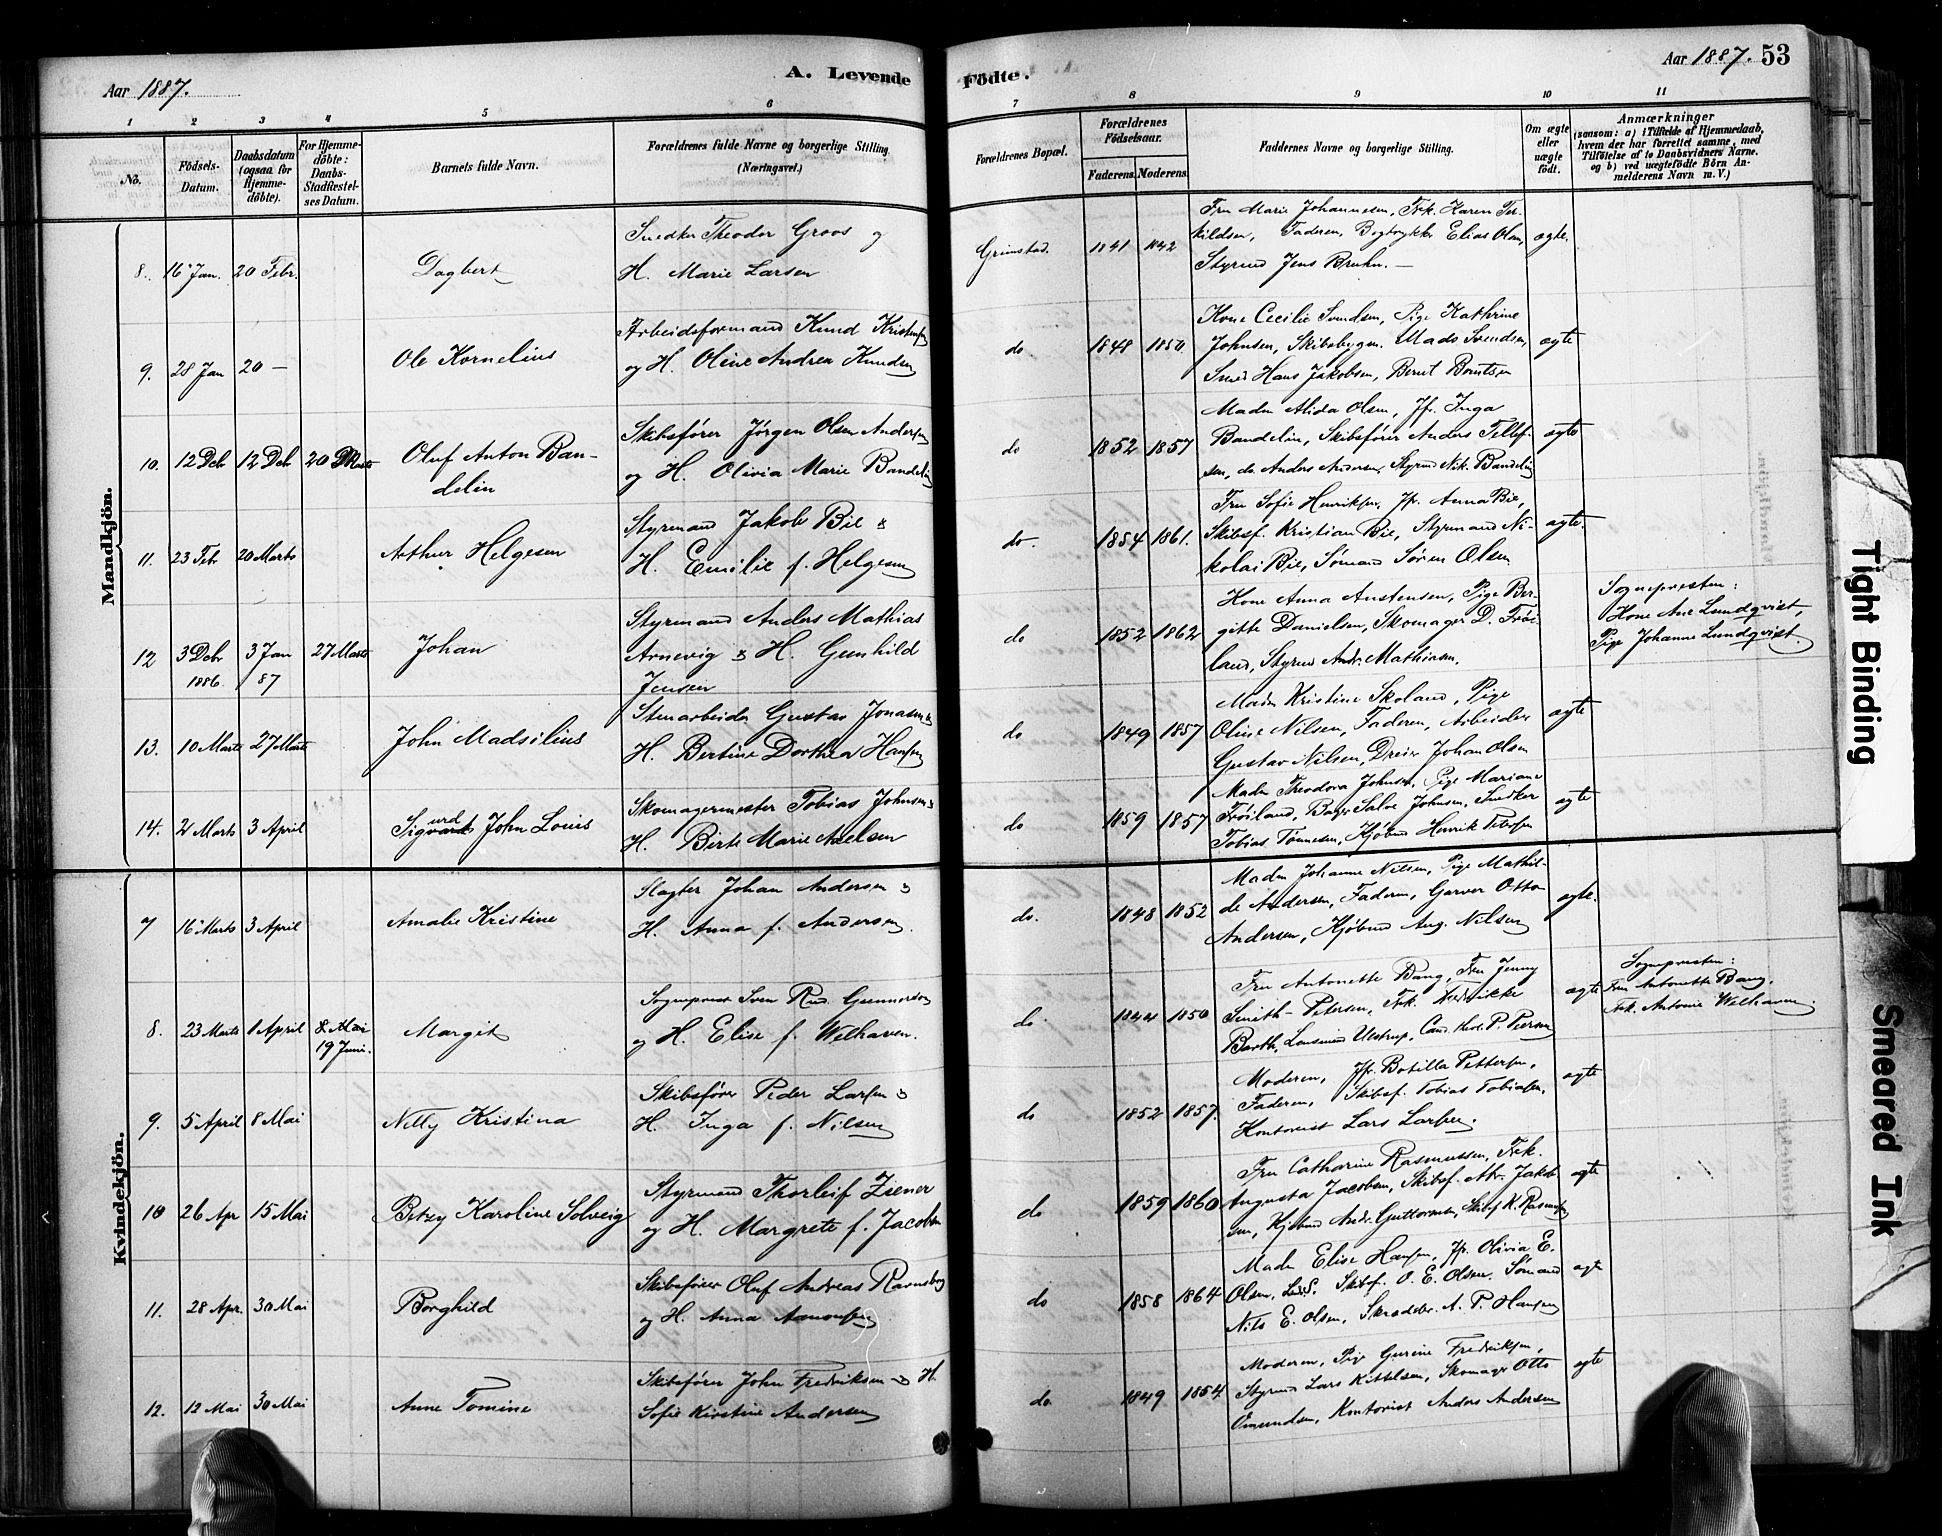 Aar 1887.
A. Levende
Fødte.
Aar 1887. 53
1 2 3 4 5 6 7 8 9 10 11
No.
Fødsels-Datum.
Daabsdatum (ogsaa for Hjemmedøbte).
For Hjemmedøbte: Daabs-Stadfæstelses Datum.
Barnets fulde Navn.
Forældrenes fulde Navne og borgerlige Stilling.
(Næringsvei.)
Forældrenes Bopæl.
Forældrenes Fødselsaar.
Faderens. Moderens.
Faddernes Navne og borgerlige Stilling.
Om ægte eller uægte født.
Anmærkninger
(saasom: a) i Tilfælde af Hjemmedaab,
hvem der har forrettet samme, med
Tilføielse af to Daabsvidners Navne.
og b) ved uægtefødte Börn An-
melderens Navn m. V.)
Mandkjön.
8. 16 Jan. 20 Febr. Dagbert
Snedker Theodor Groos og
H. Marie Larsen
Grimstad. 1841 1842
Fru Marie Johannesen, Frk. Karen Ter-
kildsen, Faderen, Bogtrykker Elias Olsen,
Styrmd Jens Bruhn. —
ægte.
9. 28 Jan 20 — Ole Kornelius
Arbeidsformand Knud Kristensen
og H. Oline Andrea Knudsen
do 1848 1850.
Kone Cecilie Svendsen, Pige Kathrine
Johnsen, Skibsbygm. Mads Svendsen,
Smed Hans Jakobsen, Bernt Berntsen
ægte
10. 12 Deb 12 Deb 20 Marts Oluf Anton Ban-
delin
Skibsfører Jørgen Olsen Andersen
og H. Olivia Marie Bandelin
do 1852 1857
Madm Alida Olsen, Jfr. Inga
Bandelin, Skibsfører Anders Tellef-
sen, do. Anders Andersen, Styrmd Nik. Bandelin
ægte
11. 23 Febr 20 Marts Arthur Helgesen
Styrmand Jakob Bie &
H. Emilie f. Helgesen
do. 1854 1861.
Fru Sofie Henriksen, Jfr. Anna Bie,
Skibsf. Kristian Bie, Styrmand Ni-
kolai Bie, Sømand Søren Olsen
ægte.
12 3 Debr 1886. 3 Jan 87 27 Marts Johan
Styrmand Anders Mathias
Arnevig & H. Gunhild
Jensen
do 1852 1862
Kone Anna Austensen, Pige Ber-
gitte Danielsen, Skomager D. Frøi-
land, Styrmd Andr. Mathiasen.
Sognepresten:
Kone Ane Lundqvist,
Pige Johanne Lundqvist.
13. 10 Marts 27 Marts John Madsilius
Stenarbeider Gustav Jonasen
H. Bertine Dorthea Hansen
do 1849 1857
Madm Kristine Skoland, Pige
Oline Nilsen, Faderen, Arbeider
Gustav Nilsen, Dreier Johan Olsen
ægte
14. 2 Marts 3 April Sigurd John Louis
Skomagermester Tobias Johnsen &
H. Birte Marie Nielsen
do 1859 1857
Madm Theodora Johnsen, Pige Mariane
Frøiland, Bager Salve Johnsen, Snedker
Tobias Tønnesen, Kjøbmd Henrik Petersen
ægte
Kvindekjön.
7 16 Marts 3 April Amalie Kristine
Slagter Johan Andersen &
H. Anna f. Andersen.
do. 1848 1852
Madm Johanne Nilsen, Pige Mathil-
de Andersen, Faderen, Garver Otto
Andersen, Kjøbmd Aug. Nilsen
ægte.
8. 23 Marts 1 April 8. Mai 19 Juni. Margit
Sogneprest Sven Rud. Gunnerson
og H. Elise f. Welhaven.
do 1844 1850
Fru Antonette Bang, Fru Jenny
Smith-Petersen, Frk. Fredrikke
Barth, Lensmand Ulstrup, Cand. theol. P.
ægte
Sognepresten:
Fru Antonette Bang,
Frk. Antonie Welhaven.
9. 5 April 8 Mai Nelly Kristina
Skibsfører Peder Larsen &
H. Inga f. Nilsen
do 1852 1857.
Moderen, Jfr. Botilla Pettersen,
Faderen, Skibsf. Tobias Tobiasen,
Kontorist Lars Larsen.
ægte
10 26 Apr 15 Mai Betzy Karoline Solveig
Styrmand Thorleif Zsener
og H. Margrete f. Jacobsen
do 1859 1860
Fru Catharine Rasmussen, Frk.
Augusta Jacobsen, Skibsf. Jakob-
sen, Kjøbmd Andr. Guttormsen, Skibsf K. Rasmussen
ægte
11. 28 Apr. 30 Mai Borghild
Skibsfører Oluf Andreas Ravnsborg
og H. Anna Amonsen
do 1858 1864
Madm Elise Hansen, Jfr. Olivia E.
Olsen, Skibsf. O. E. Olsen, Sømand
Nils E. Olsen, Skrædder A. P. Hansen
ægte
12. 12 Mai 30 Mai Anne Tomine
Skibsfører John Fredriksen & H.
Sofie Kirstine Andersen
do 1849 1854.
Moderen, Pige Gurine Fredriksen,
Styrmd Lars Kittelsen, Skomager Otto
Omundsen, Kontorist Anders Andersen
ægte
Tight Binding
Smeared Ink